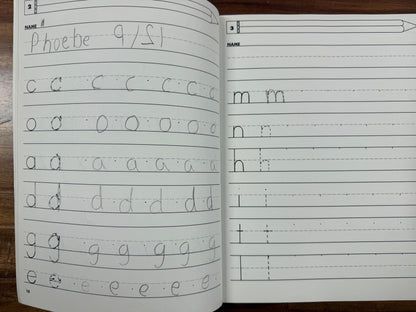 2
NAME
Phoebe 9/21
c c c c c c c
o o o o o o o
a a a a a a a
d d d d d d d
g g g g g g g
e e e e e e e
18
2
NAME
m m
n n
h h
i i
t t
l l